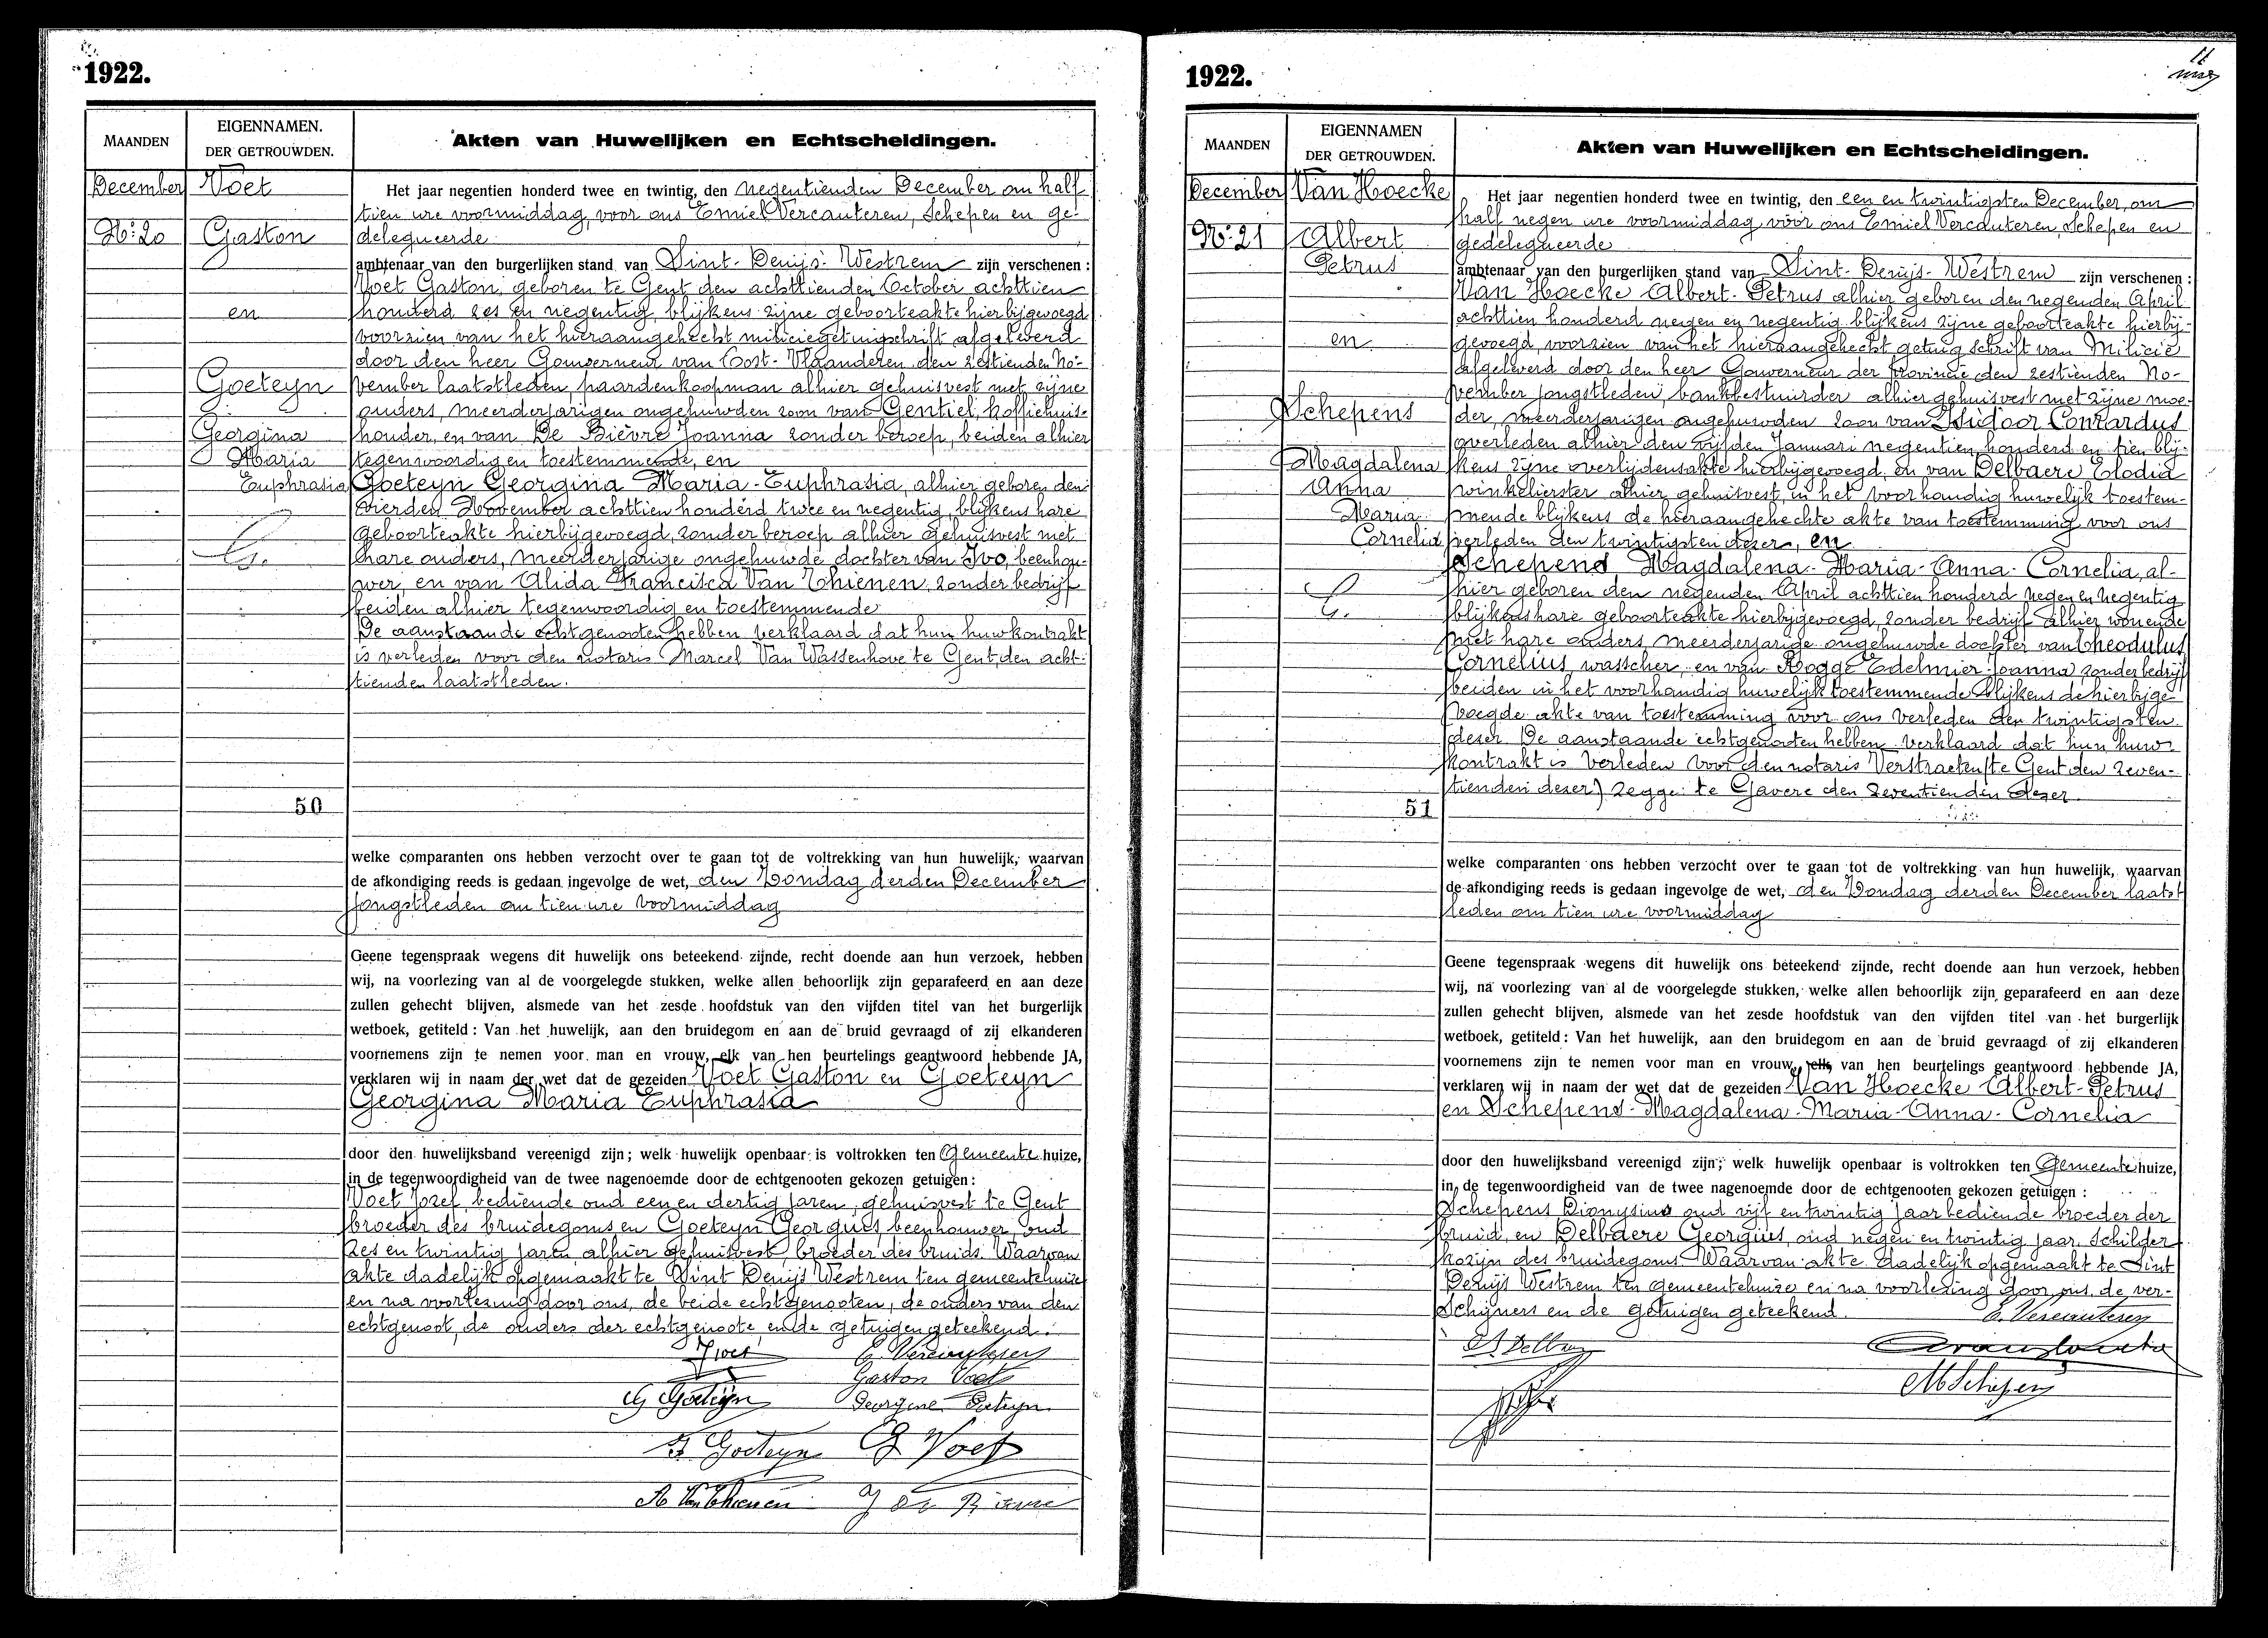 1922.
MAANDEN
EIGENNAMEN.
DER GETROUWDEN.
Akten van Huwelijken en Echtscheidingen.
December
Nº: 20
Voet
Gaston
en
Goeteyn
Georgina
Maria
Euphrasia
G.
50
Het jaar negentien honderd twee en twintig, den negentienden December om half
tien ure voormiddag, voor ons Emiel Vercauteren, Schepen en ge-
delegueerde
ambtenaar van den burgerlijken stand van Sint-Denijs-Westrem zijn verschenen :
Voet Gaston, geboren te Gent den achttienden October achttien
honderd zes en negentig, blijkens zijne geboorteakte hierbijgevoegd
voorzien van het hieraangehecht miliciegetuigschrift afgeleverd
door den heer Gouverneur van Oost-Vlaanderen, den zestienden No-
vember laatstleden, paardenkoopman alhier gehuisvest met zijne
ouders, meerderjarigen ongehuwden zoon van Gentiel, koffiehuis-
houder, en van De Bièvre Joanna zonder beroep, beiden alhier
tegenwoordig en toestemmende, en
Goeteyn Georgina Maria-Euphrasia, alhier geboren den
vierden November achttien honderd twee en negentig, blijkens hare
geboorteakte hierbijgevoegd, zonder beroep alhier gehuisvest met
hare ouders, meerderjarige ongehuwde dochter van Ivo, beenhou-
wer, en van Alida Francisca Van Thienen, zonder bedrijf
beiden alhier tegenwoordig en toestemmende
De aanstaande echtgenooten hebben verklaard dat hun huwkontrakt
is verleden voor den notaris Marcel Van Wassenhove te Gent den acht-
tienden laatstleden.
welke comparanten ons hebben verzocht over te gaan tot de voltrekking van hun huwelijk, waarvan
de afkondiging reeds is gedaan ingevolge de wet, den Zondag derden December
jongstleden om tien ure voormiddag
Geene tegenspraak wegens dit huwelijk ons beteekend zijnde, recht doende aan hun verzoek, hebben
wij, na voorlezing van al de voorgelegde stukken, welke allen behoorlijk zijn geparafeerd en aan deze
zullen gehecht blijven, alsmede van het zesde hoofdstuk van den vijfden titel van het burgerlijk
wetboek, getiteld : Van het huwelijk, aan den bruidegom en aan de bruid gevraagd of zij elkanderen
voornemens zijn te nemen voor man en vrouw, elk van hen beurtelings geantwoord hebbende JA,
verklaren wij in naam der wet dat de gezeiden Voet Gaston en Goeteyn
Georgina Maria Euphrasia
door den huwelijksband vereenigd zijn ; welk huwelijk openbaar is voltrokken ten Gemeente huize,
in de tegenwoordigheid van de twee nagenoemde door de echtgenooten gekozen getuigen :
Voet Jozef, bediende oud een en dertig jaren, gehuisvest te Gent
broeder des bruidegoms en Goeteyn Georgius, beenhouwer, oud
zes en twintig jaren alhier gehuisvest, broeder des bruids. Waarvan
akte dadelijk opgemaakt te Sint Denijs Westrem ten gemeentehuize
en na voorlezing door ons, de beide echtgenooten, de ouders van den
echtgenoot, de ouders der echtgenoote en de getuigen geteekend.
J Voet E. Vercauteren
Gaston Voet
G Goeteyn Georgine Goeteyn
I Goeteyn G Voet
A Van Thienen J De Bievre
1922.
MAANDEN
EIGENNAMEN
DER GETROUWDEN.
Akten van Huwelijken en Echtscheidingen.
December
Nº: 21
Van Hoecke
Albert
Petrus
en
Schepens
Magdalena
Anna
Maria
Cornelia
G.
51
Het jaar negentien honderd twee en twintig, den een en twintigsten December, om
half negen ure voormiddag voor ons Emiel Vercauteren, Schepen en
gedelegueerde
ambtenaar van den burgerlijken stand van Sint-Denijs-Westrem zijn verschenen :
Van Hoecke Albert-Petrus alhier geboren den negenden April
achttien honderd negen en negentig blijkens zijne geboorteakte hierbij-
gevoegd, voorzien van het hieraangehecht getuigschrift van Milicie
afgeleverd door den heer Gouverneur der Provincie den zestienden No-
vember jongstleden, bankbestuurder alhier gehuisvest met zijne moe-
der, meerderjarigen ongehuwden zoon van Isidoor Conrardus
overleden alhier den vijfden Januari negentien honderd en tien blij-
kens zijne overlijdensakte hierbijgevoegd, en van Delbaere Elodia
winkelierster alhier gehuisvest, in het voorhandig huwelijk toestem-
mende blijkens de hieraangehechte akte van toestemming voor ons
verleden den twintigsten dezer, en
Schepens Magdalena-Maria-Anna-Cornelia, al-
hier geboren den negenden April achttien honderd negen en negentig
blijkens hare geboorteakte hierbijgevoegd, zonder bedrijf alhier wonende
met hare ouders, meerderjarige ongehuwde dochter van Theodulus
Cornelius, wasscher, en van Rogge Edelmier-Joanna, zonder bedrijf
beiden in het voorhandig huwelijk toestemmende blijkens de hierbijge-
voegde akte van toestemming voor ons verleden den twintigsten
dezer. De aanstaande echtgenooten hebben verklaard dat hun huw-
kontrakt is verleden voor den notaris Verstraeten (te Gent den zeven-
tienden dezer) zegge: te Gavere den zeventienden dezer
welke comparanten ons hebben verzocht over te gaan tot de voltrekking van hun huwelijk, waarvan
de afkondiging reeds is gedaan ingevolge de wet, den Zondag derden December laatst
leden om tien ure voormiddag
Geene tegenspraak wegens dit huwelijk ons beteekend zijnde, recht doende aan hun verzoek, hebben
wij, na voorlezing van al de voorgelegde stukken, welke allen behoorlijk zijn geparafeerd en aan deze
zullen gehecht blijven, alsmede van het zesde hoofdstuk van den vijfden titel van het burgerlijk
wetboek, getiteld : Van het huwelijk, aan den bruidegom en aan de bruid gevraagd of zij elkanderen
voornemens zijn te nemen voor man en vrouw, elk van hen beurtelings geantwoord hebbende JA,
verklaren wij in naam der wet dat de gezeiden Van Hoecke Albert-Petrus
en Schepens-Magdalena-Maria-Anna-Cornelia
door den huwelijksband vereenigd zijn ; welk huwelijk openbaar is voltrokken ten Gemeente huize,
in de tegenwoordigheid van de twee nagenoemde door de echtgenooten gekozen getuigen :
Schepens Dionysius oud vijf en twintig jaar bediende broeder der
bruid, en Delbaere Georgius, oud negen en twintig jaar, Schilder
kozijn des bruidegoms. Waarvan akte dadelijk opgemaakt te Sint
Denijs Westrem ten gemeentehuize en na voorlezing door ons, de ver-
schijners en de getuigen geteekend.
E. Vercauteren
MSchepens